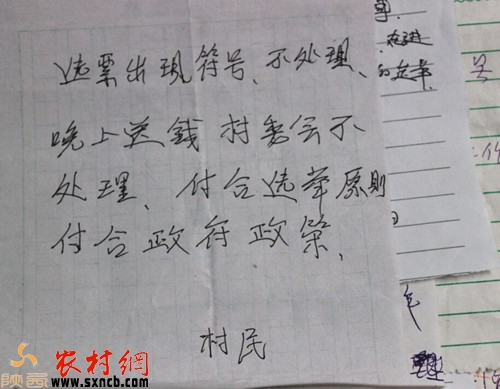 选票出现符号、不处理、
晚上送钱 村委会不
处理、付合选举原则
付合政府政策、
村民
号
农村網
www.sxncb.com
陕西